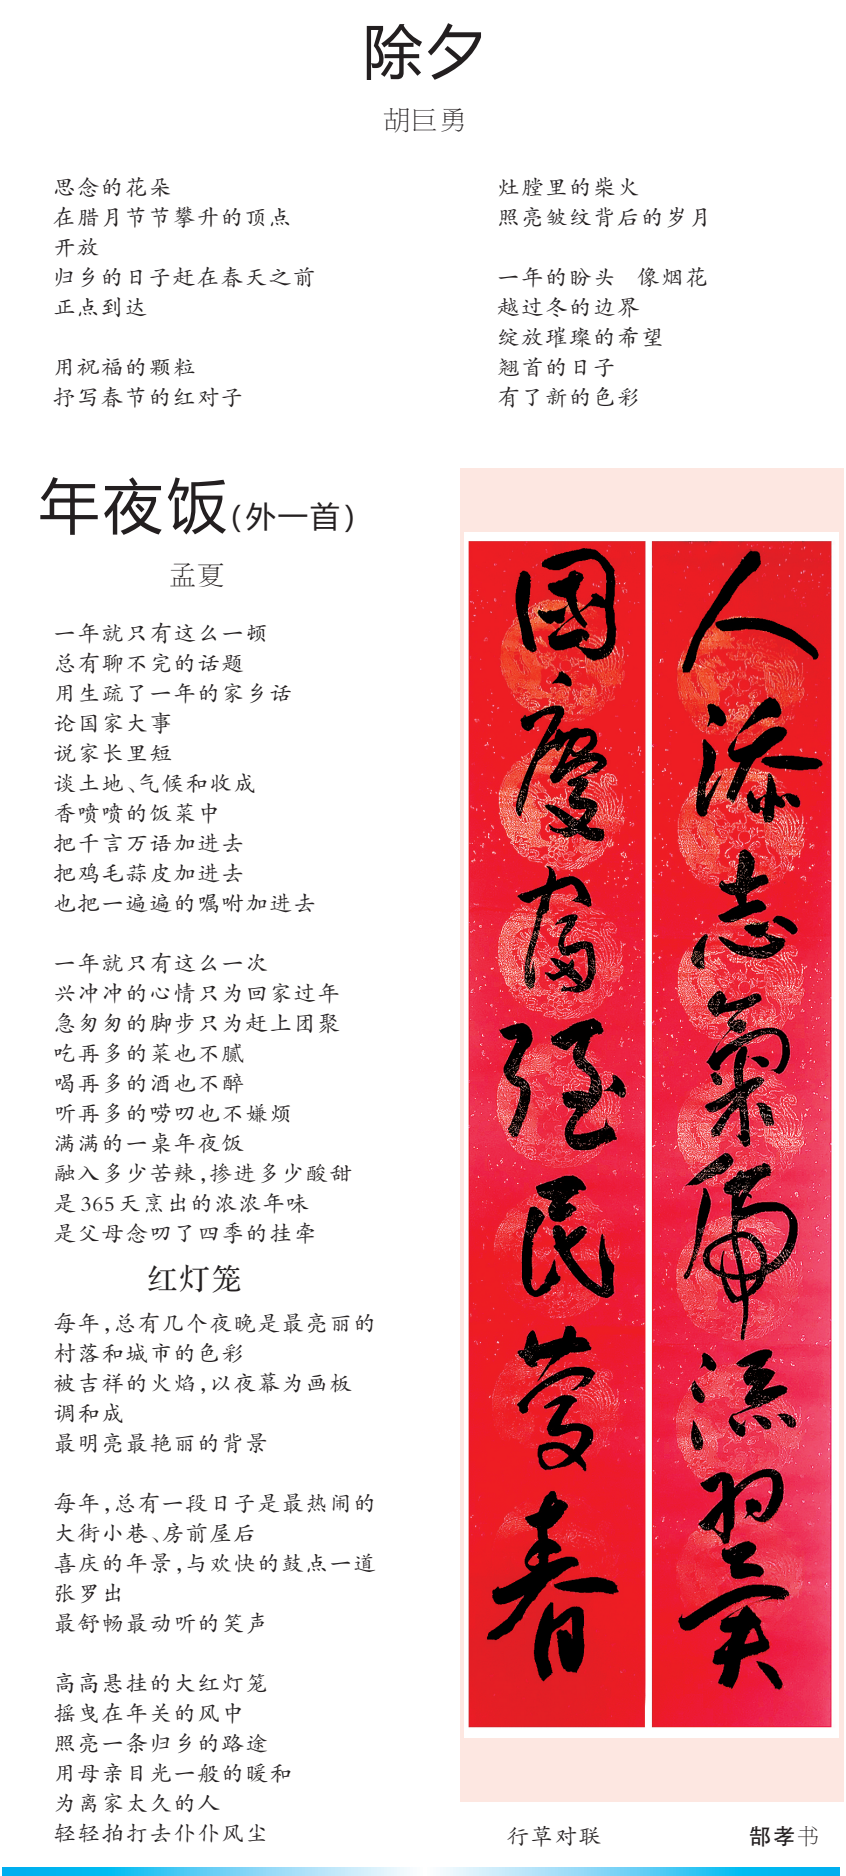 除夕
胡巨勇
思念的花朵
在腊月节节攀升的顶点
开放
归乡的日子赶在春天之前
正点到达
用祝福的颗粒
抒写春节的红对子
灶膛里的柴火
照亮皱纹背后的岁月
一年的盼头　像烟花
越过冬的边界
绽放璀璨的希望
翘首的日子
有了新的色彩
年夜饭(外一首)
孟夏
一年就只有这么一顿
总有聊不完的话题
用生疏了一年的家乡话
论国家大事
说家长里短
谈土地、气候和收成
香喷喷的饭菜中
把千言万语加进去
把鸡毛蒜皮加进去
也把一遍遍的嘱咐加进去
一年就只有这么一次
兴冲冲的心情只为回家过年
急匆匆的脚步只为赶上团聚
吃再多的菜也不腻
喝再多的酒也不醉
听再多的唠叨也不嫌烦
满满的一桌年夜饭
融入多少苦辣,掺进多少酸甜
是365天烹出的浓浓年味
是父母念叨了四季的挂牵
红灯笼
每年,总有几个夜晚是最亮丽的
村落和城市的色彩
被吉祥的火焰,以夜幕为画板
调和成
最明亮最艳丽的背景
每年,总有一段日子是最热闹的
大街小巷、房前屋后
喜庆的年景,与欢快的鼓点一道
张罗出
最舒畅最动听的笑声
高高悬挂的大红灯笼
摇曳在年关的风中
照亮一条归乡的路途
用母亲目光一般的暖和
为离家太久的人
轻轻拍打去仆仆风尘
人添志氣虎添翼
國慶富強民慶春
行草对联　郜孝书